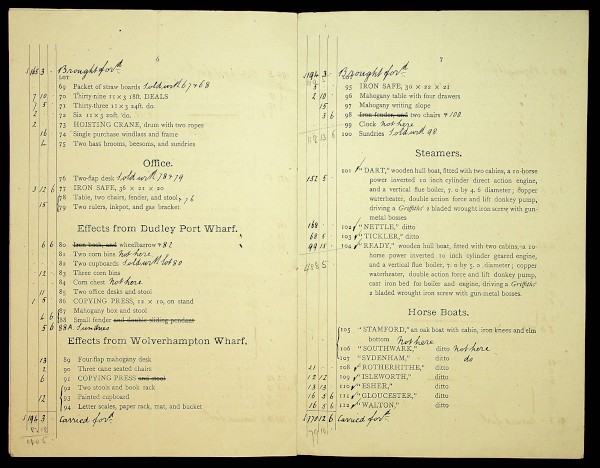 6
£ 165 3 - Brought forwd.
LOT
69 Packet of straw boards Sold with 67 & 68
7 10 - 70 Thirty-nine 11 x 3 18ft. DEALS
7 5 71 Thirty-three 11 x 3 24ft. do.
2 72 Six 11 x 3 20ft. do.
2 73 HOISTING CRANE, drum with two ropes
16 74 Single purchase windlass and frame
4 75 Two bass brooms, beesoms, and sundries
Office.
76 Two-flap desk Sold with 78 & 79
3 12 6 77 IRON SAFE, 36 x 22 x 20
78 Table, two chairs, fender, and stool, 76
15 79 Two rulers, inkpot, and gas bracket
Effects from Dudley Port Wharf.
6 6 80 Iron bock, and wheelbarrow & 82
81 Two corn bins not here
82 Two cupboards Sold with lot 80
12 - 83 Three corn bins
84 Corn chest Not here
11 85 Two office desks and stool
1 5 86 COPYING PRESS, 12 x 10, on stand
87 Mahogany box and stool
4 6 88 Small fender and double sliding pendant
5 6 88A. Sundries
Effects from Wolverhampton Wharf.
13 89 Four-flap mahogany desk
2 90 Three cane seated chairs
6 91 COPYING PRESS and stool
92 Two stools and book rack
12 93 Painted cupboard
94 Letter scales, paper rack, mat, and bucket
£ 194 3 - Carried forwd.
7
£194 3 - Brought forwd.
LOT
5 95 IRON SAFE, 30 x 22 x 21
2 10 96 Mahogany table with four drawers
15 97 Mahogany writing slope
3 6 98 Iron fender, and two chairs & 100
99 Clock Not here
100 Sundries Sold with 98
Steamers.
101 "DART," wooden hull boat, fitted with two cabins, a 10-horse
152 5 - power inverted 10 inch cylinder direct action engine,
and a vertical flue boiler, 7. 0 by 4. 6 diameter; copper
waterheater, double action force and lift donkey pump,
driving a Griffiths' 2 bladed wrought iron screw with gun-
metal bosses
168 - 102 "NETTLE," ditto
68 5 - 103 "TICKLER," ditto
99 15 - 104 "READY," wooden hull boat, fitted with two cabins, a 10-
horse power inverted 10 inch cylinder geared engine,
and a vertical flue boiler, 7. 0 by 5. 0 diameter; copper
waterheater, double action force and lift donkey pump,
cast iron bed for boiler and engine, driving a Griffiths'
2 bladed wrought iron screw with gun-metal bosses.
Horse Boats.
105 "STAMFORD," an oak boat with cabin, iron knees and elm
bottom Not here
106 "SOUTHWARK," ditto Not here
107 "SYDENHAM," ditto do
11 - 108 "ROTHERHITHE," ditto
12 12 - 109 "ISLEWORTH," ditto
13 13 - 110 "ESHER," ditto
16 5 6 111 "GLOUCESTER," ditto
16 5 6 112 "WALTON," ditto
£770 12 6 Carried forwd.